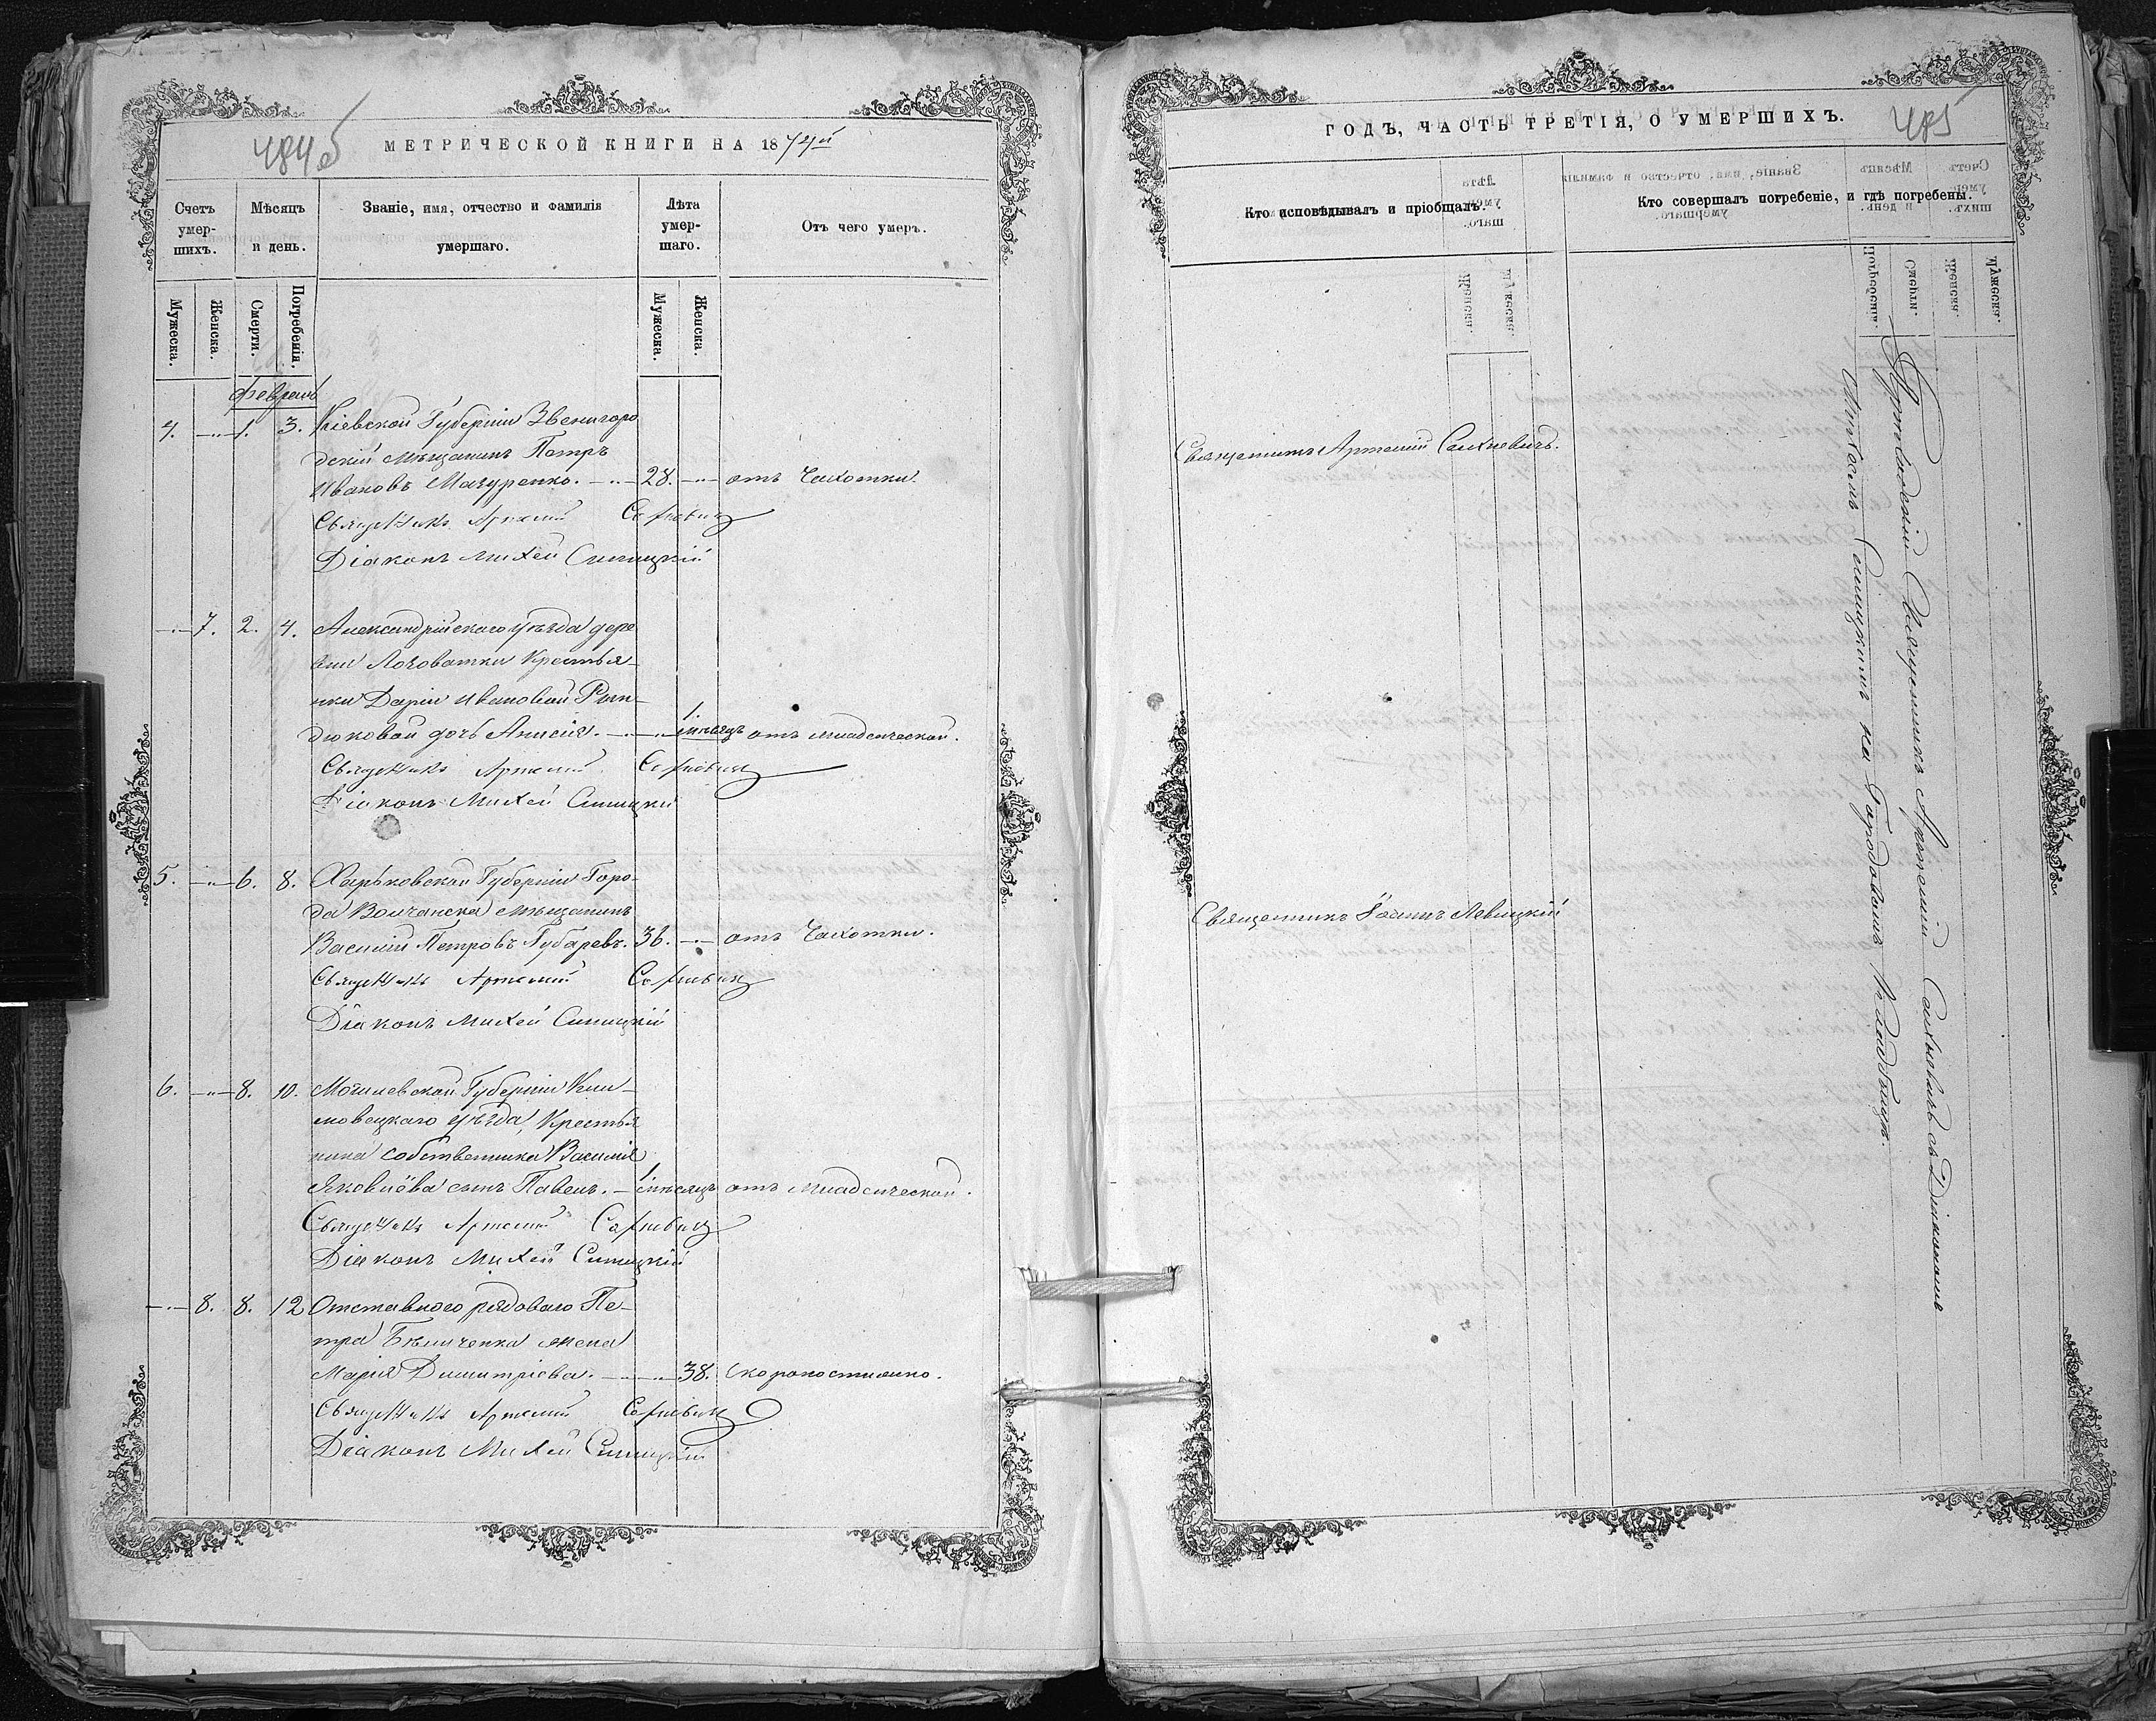 484об
МЕТРИЧЕСКОЙ КНИГИ НА 1874й
Счетъ умер-шихъ.
Мѣсяцъ и день.
Званіе, имя, отчество и фамилія умершаго.
Лѣта умер-шаго.
Отъ чего умеръ.
Мужеска.
Женска.
Смерти.
Погребенія.
Мужеска.
Женска.
Февраль
4. 1. 3. Кіевской Губерніи Звенигоро
дскій мѣщанинъ Петръ
Ивановъ Мазуренко. 28. отъ Чахотки.
Священникъ Артемій Сахневичъ
Діаконъ Михей Синицкій
7. 2. 4. Александрійскаго уѣзда дере
вни Логоватки Крестья-
нки Даріи Ивановой
дюковой дочь Анисія. 1 мѣсяцъ отъ младенческой.
Священникъ Артемій Сахневичъ
Діаконъ Михей Синицкій
5. 6. 8. Харьковской Губерніи Горо-
да Волчанска мѣщанинъ
Василій Петровъ Губаревъ. 36. отъ Чахотки.
Священникъ Артемій Сахневичъ
Діаконъ Михей Синицкій
6. 8. 10. Могилевской Губерніи Кли-
мовецкаго уѣзда, Крестья
нина собственника Василія
Яковлёва сынъ Павелъ. 1 мѣсяцъ отъ младенческой.
Священникъ Артемій Сахневичъ
Діаконъ Михей Синицкій
8. 8. 12 Отставного рядового Пе-
тра Бѣличенка жена
Марія Димитріева. 38. Скоропостижно.
Священникъ Артемій Сахневичъ
Діаконъ Михей Синицкій
ГОДЪ, ЧАСТЬ ТРЕТІЯ, О УМЕРШИХЪ.
485
Кто исповѣдывалъ и пріобщалъ.
Кто совершалъ погребеніе, и гдѣ погребены.
Священникъ Артемій Сахневичъ.
Священникъ Іоаннъ Левицкій
Священникъ Артемій Сахневичъ съ Діакономъ
Михеемъ Синицкимъ на Городскомъ Кладбищѣ.